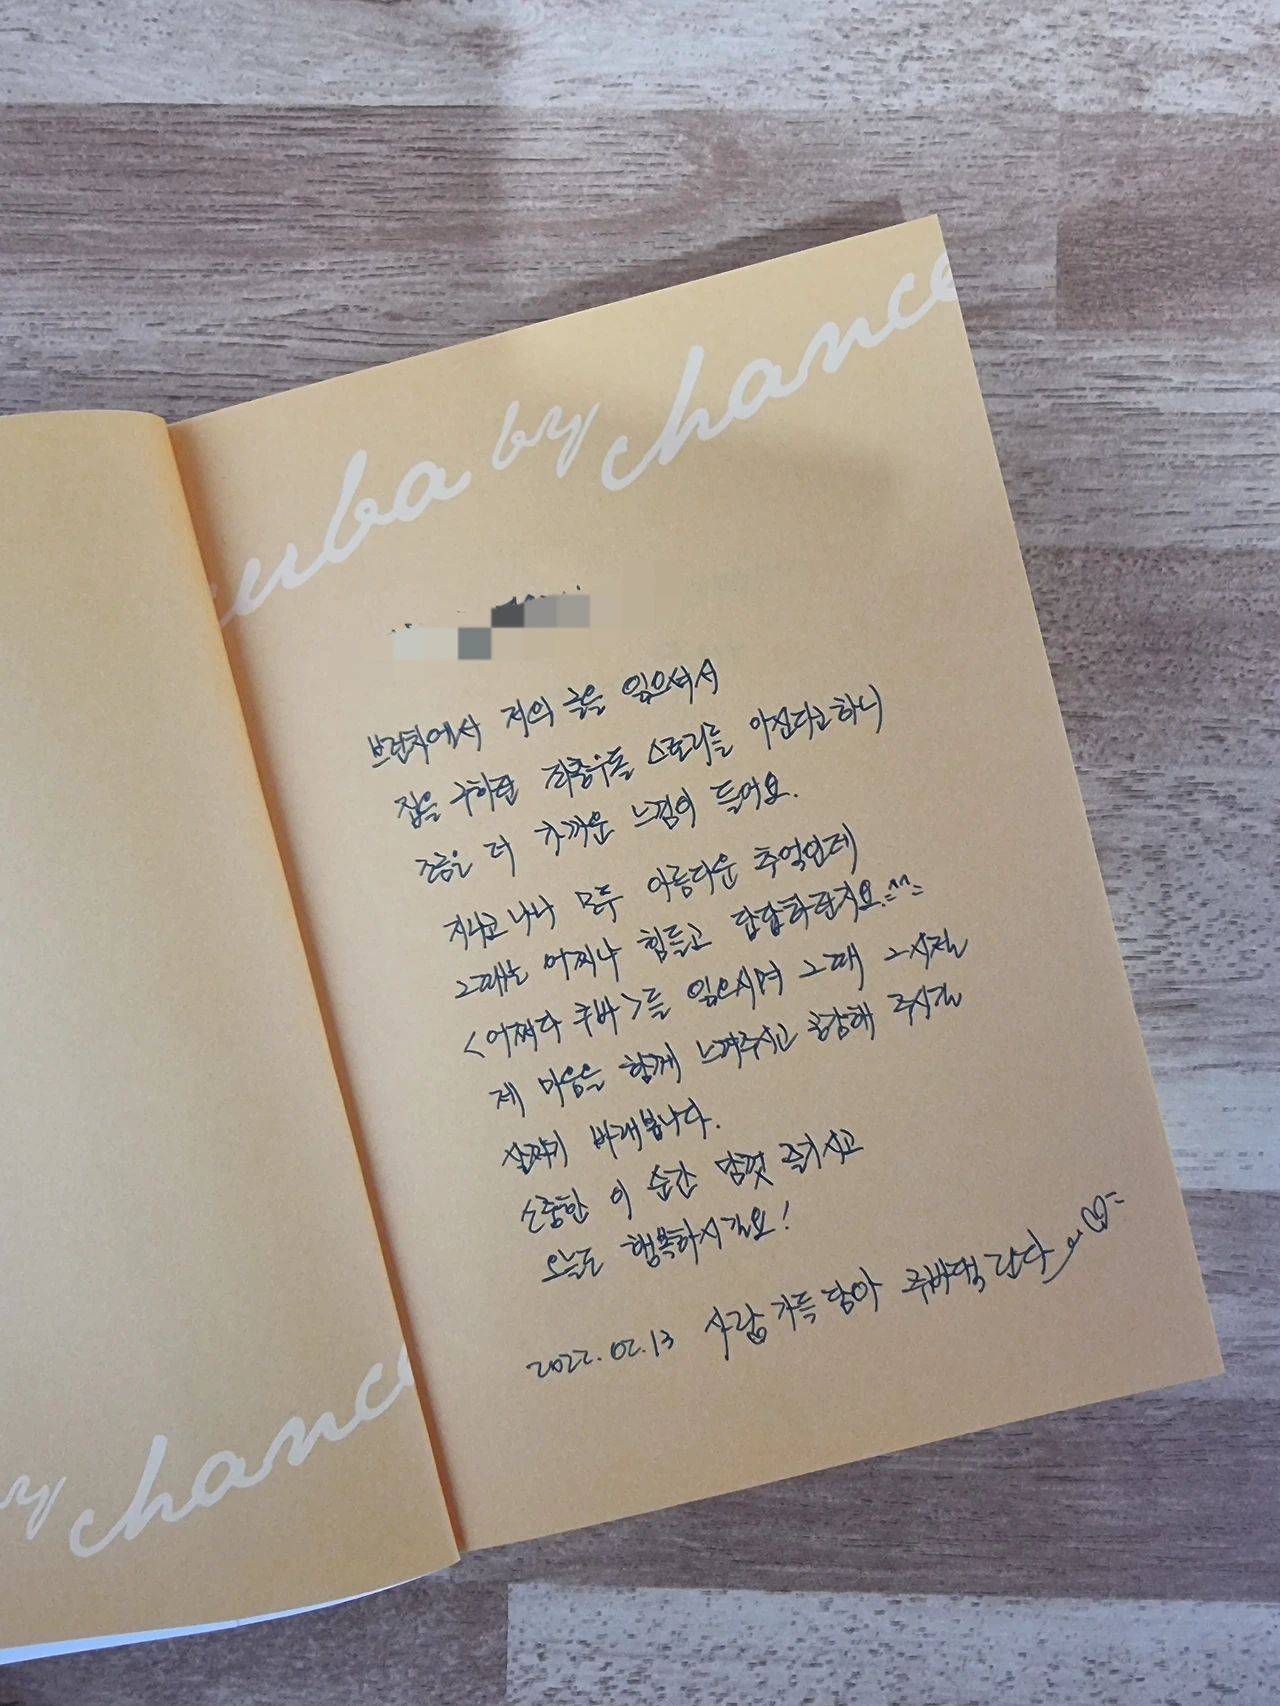 cuba by chance
브런치에서 저의 글을 읽으셔서
집을 구하던 좌충우돌 스토리를 아신다고하니
조금은 더 가까운 느낌이 들어요.
지나고나니 모두 아름다운 추억인데
그때는 어찌나 힘들고 답답하던지요.^^
<어쩌다 쿠바>를 읽으시며 그때 그시절
제 마음을 함께 느껴주시고 공감해 주시길
살짝이 바래봅니다.
소중한 이 순간 맘껏 즐기시고
오늘도 행복하시길요!
2022.02.13 사랑 가득 담아 쿠바댁 린다
by chance